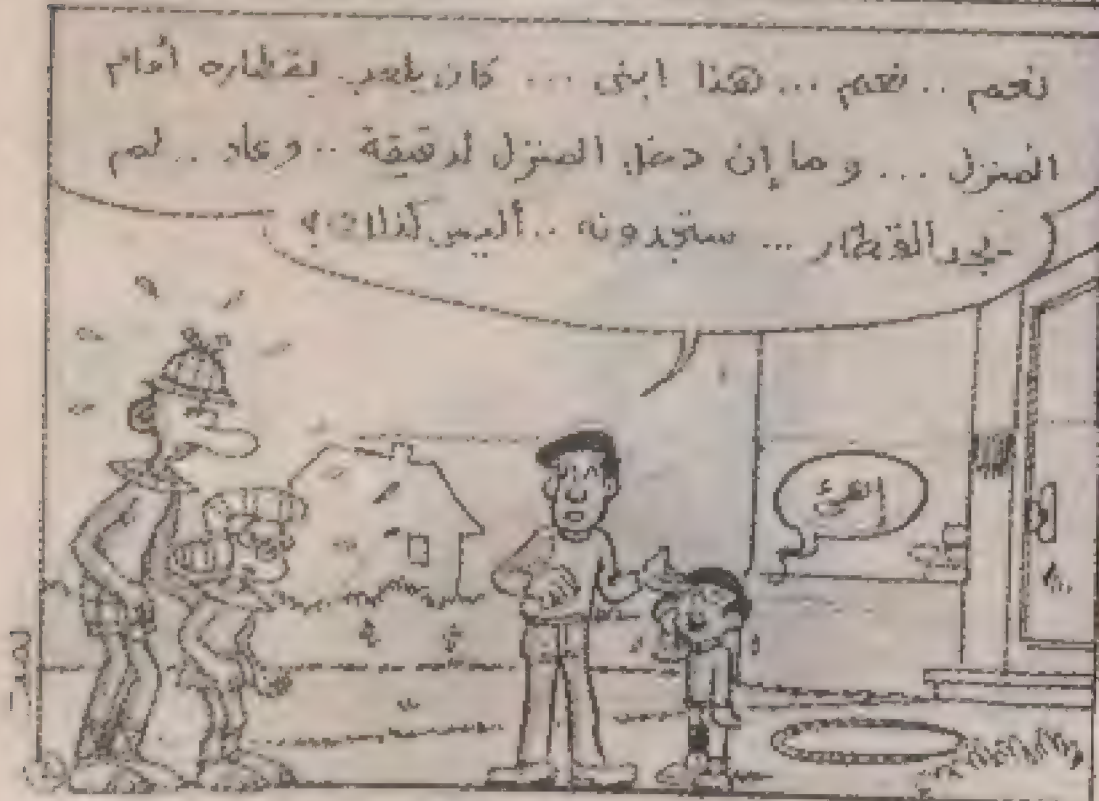 نعم .. نعم ... هذا ابني ... كان يلعب بقطاره أمام
المنزل ... وما إن دخل المنزل لدقيقة .. وعاد .. لم
يجد القطار ... ستجدونه .. أليس كذلك ؟